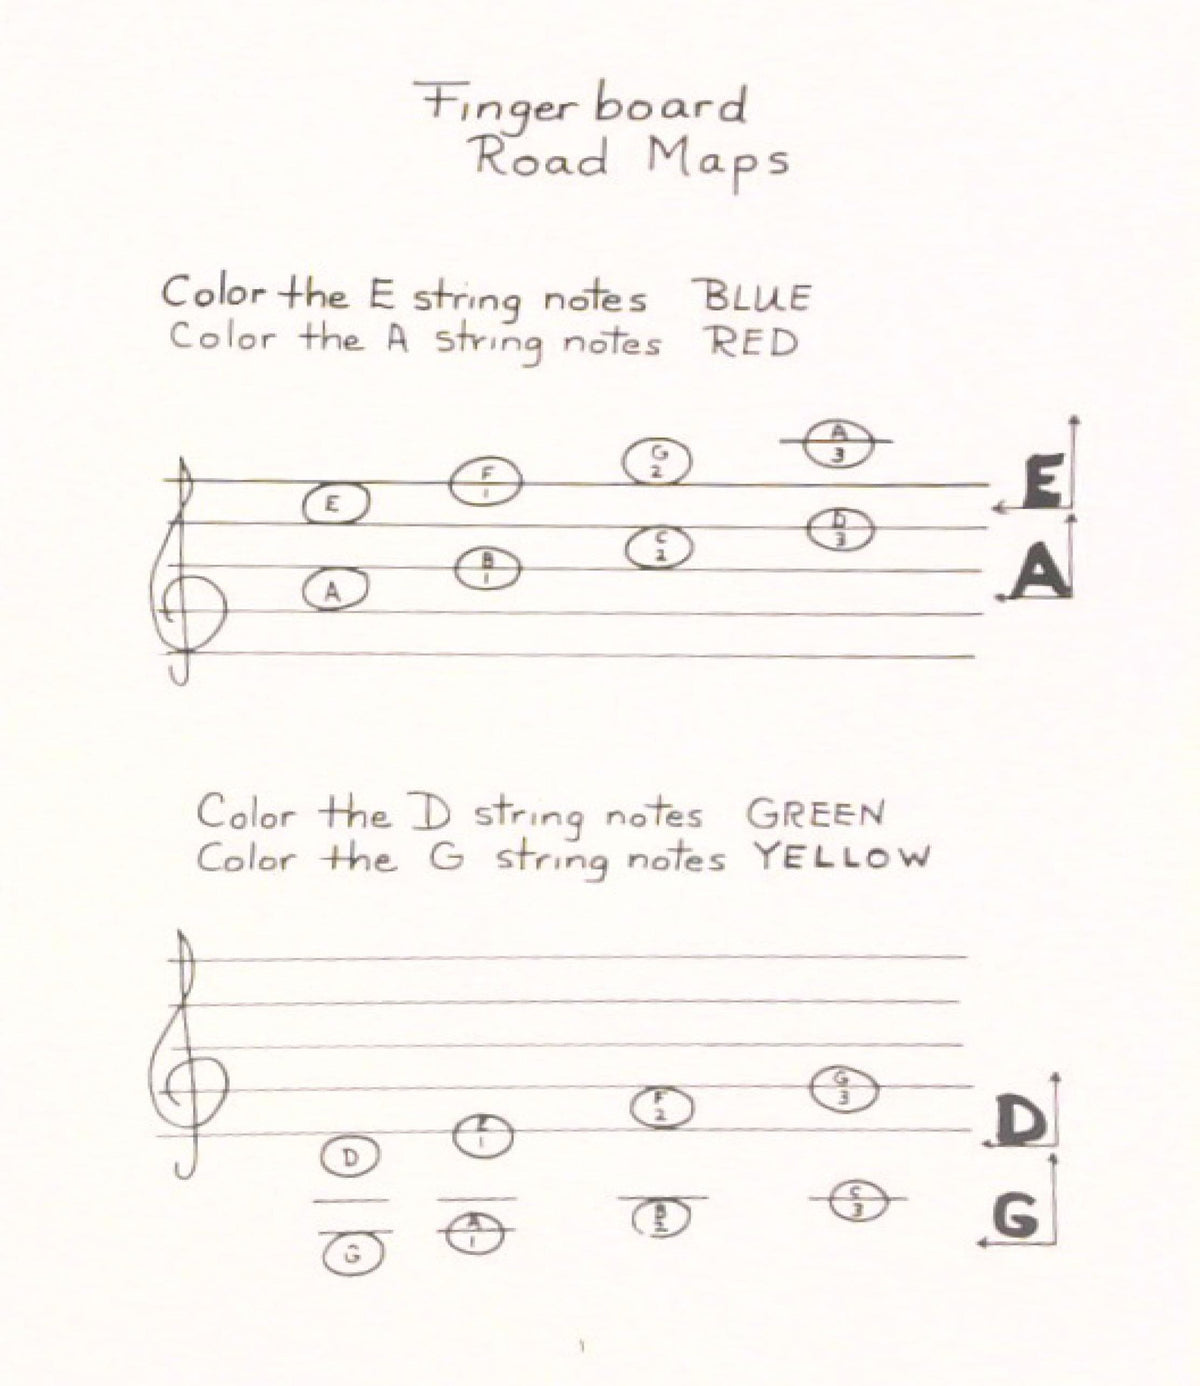 Fingerboard
Road Maps
Color the E string notes BLUE
Color the A string notes RED
E F 1 G 2 A 3 E
A B 1 C 2 D 3 A
Color the D string notes GREEN
Color the G string notes YELLOW
D E 1 F 2 G 3 D
G A 1 B 2 C 3 G
1